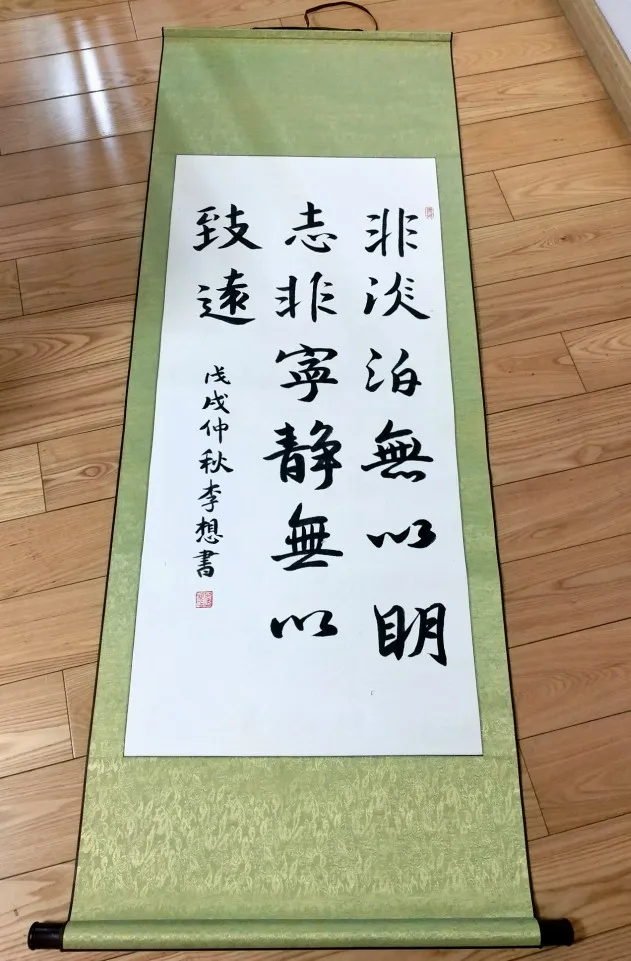 非淡泊無以明
志非寧静無以
致遠
戊戌仲秋李想書